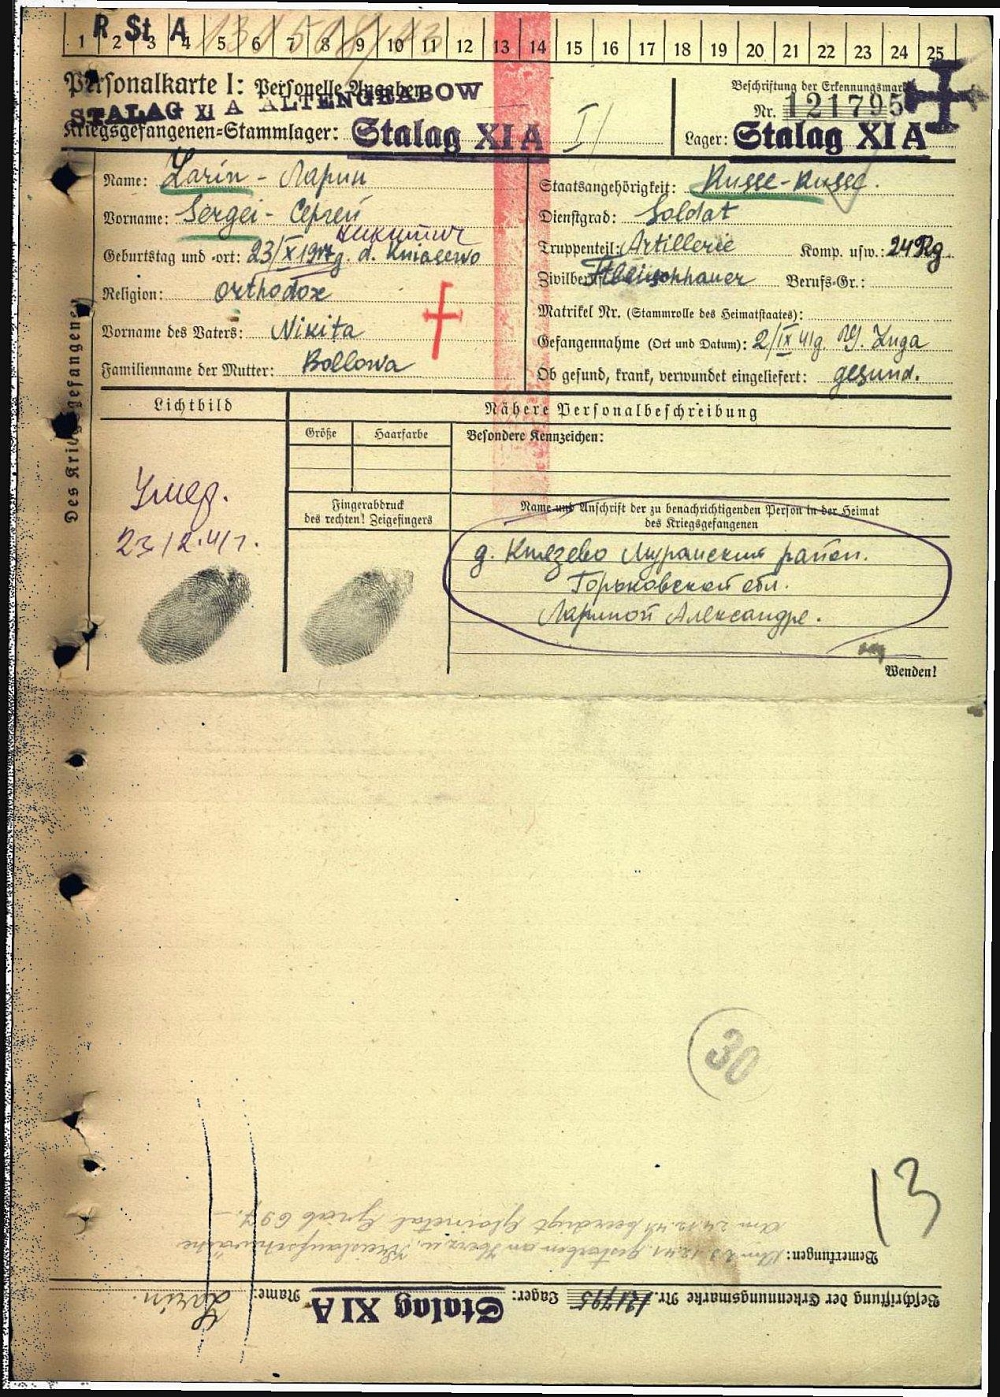 R. St. A
1 2 3 4 5 6 7 8 9 10 11 12 13 14 15 16 17 18 19 20 21 22 23 24 25
Personalkarte I: Personelle Angaben
STALAG XI A ALTENGRABOW
Kriegsgefangenen-Stammlager: Stalag XI A
I/
Beschriftung der Erkennungsmarke
Nr. 121795
Lager: Stalag XI A
Des Kriegsgefangenen
Name: Larin - Ларин
Vorname: Sergei - Сергей
Никитич
Geburtstag und -ort: 23/X 1917g. d. Kniasewo
Religion: orthodox
Vorname des Vaters: Nikita
Familienname der Mutter: Bollowa
Staatsangehörigkeit: Russe-Russe.
Dienstgrad: Soldat
Truppenteil: Artillerie Komp. usw.: 24
Zivilberuf: Berufs-Gr.:
Matrikel Nr. (Stammrolle des Heimatstaates):
Gefangennahme (Ort und Datum): 2/IX 41g. Luga
Ob gesund, krank, verwundet eingeliefert: gesund.
Lichtbild
Nähere Personalbeschreibung
Größe Haarfarbe Besondere Kennzeichen:
Fingerabdruck
des rechten! Zeigefingers
Name und Anschrift der zu benachrichtigenden Person in der Heimat
des Kriegsgefangenen
Умер.
23/12.41г.
д. Князево Муромский район.
Горьковской обл.
Лариной Александре.
Wenden!
30
13
Bemerkungen: Am 23.12.41 gestorben an Herz u. Kreislaufschwäche
Am 24.12.41 beerdigt Grab 697.
Beschriftung der Erkennungsmarke Nr. 121795 Lager: Stalag XI A Name: Larin.